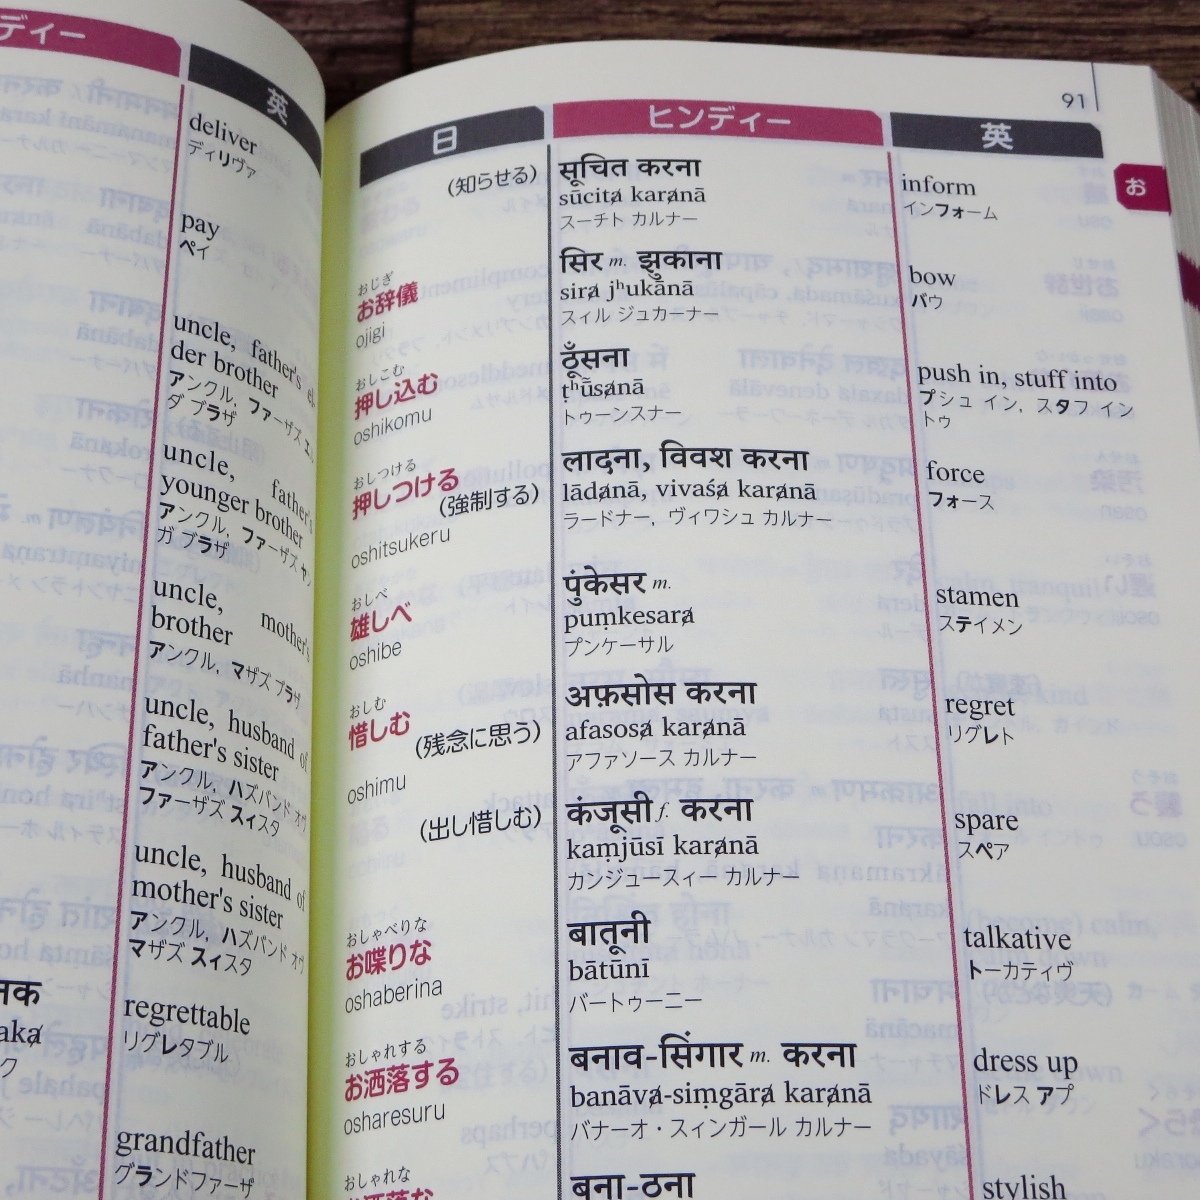 ディー
英
deliver
ディリヴァ
pay
ペイ
uncle, father's el-
der brother
アンクル, ファーザズ エル
ダ ブラザ
uncle, father's
younger brother
アンクル, ファーザズ ヤン
ガ ブラザ
uncle, mother's
brother
アンクル, マザズ ブラザ
uncle, husband of
father's sister
アンクル, ハズバンド オヴ
ファーザズ スィスタ
uncle, husband of
mother's sister
アンクル, ハズバンド オヴ
マザズ スィスタ
regrettable
リグレタブル
grandfather
グランドファーザ
91
日
ヒンディー
英
お
(知らせる)
सूचित करना
sūcita karanā
スーチト カルナー
inform
インフォーム
おじぎ
お辞儀
ojigi
सिर m. झुकाना
sira jʰukānā
スィル ジュカーナー
bow
バウ
おしこむ
押し込む
oshikomu
ठूँसना
ṭʰū̃sanā
トゥーンスナー
push in, stuff into
プシュ イン, スタフ イン
トゥ
おしつける
押しつける
(強制する)
oshitsukeru
लादना, विवश करना
lādanā, vivaśa karanā
ラードナー, ヴィワシュ カルナー
force
フォース
おしべ
雄しべ
oshibe
पुंकेसर m.
puṃkesara
プンケーサル
stamen
ステイメン
おしむ
惜しむ
(残念に思う)
oshimu
अफ़सोस करना
afasosa karanā
アファソース カルナー
regret
リグレト
(出し惜しむ)
कंजूसी f. करना
kaṃjūsī karanā
カンジュースィー カルナー
spare
スペア
おしゃべりな
お喋りな
oshaberina
बातूनी
bātūnī
バートゥーニー
talkative
トーカティヴ
おしゃれする
お洒落する
osharesuru
बनाव-सिंगार m. करना
banāva-siṃgāra karanā
バナーオ・スィンガール カルナー
dress up
ドレス アプ
おしゃれな
お洒落な
बना-ठना
stylish